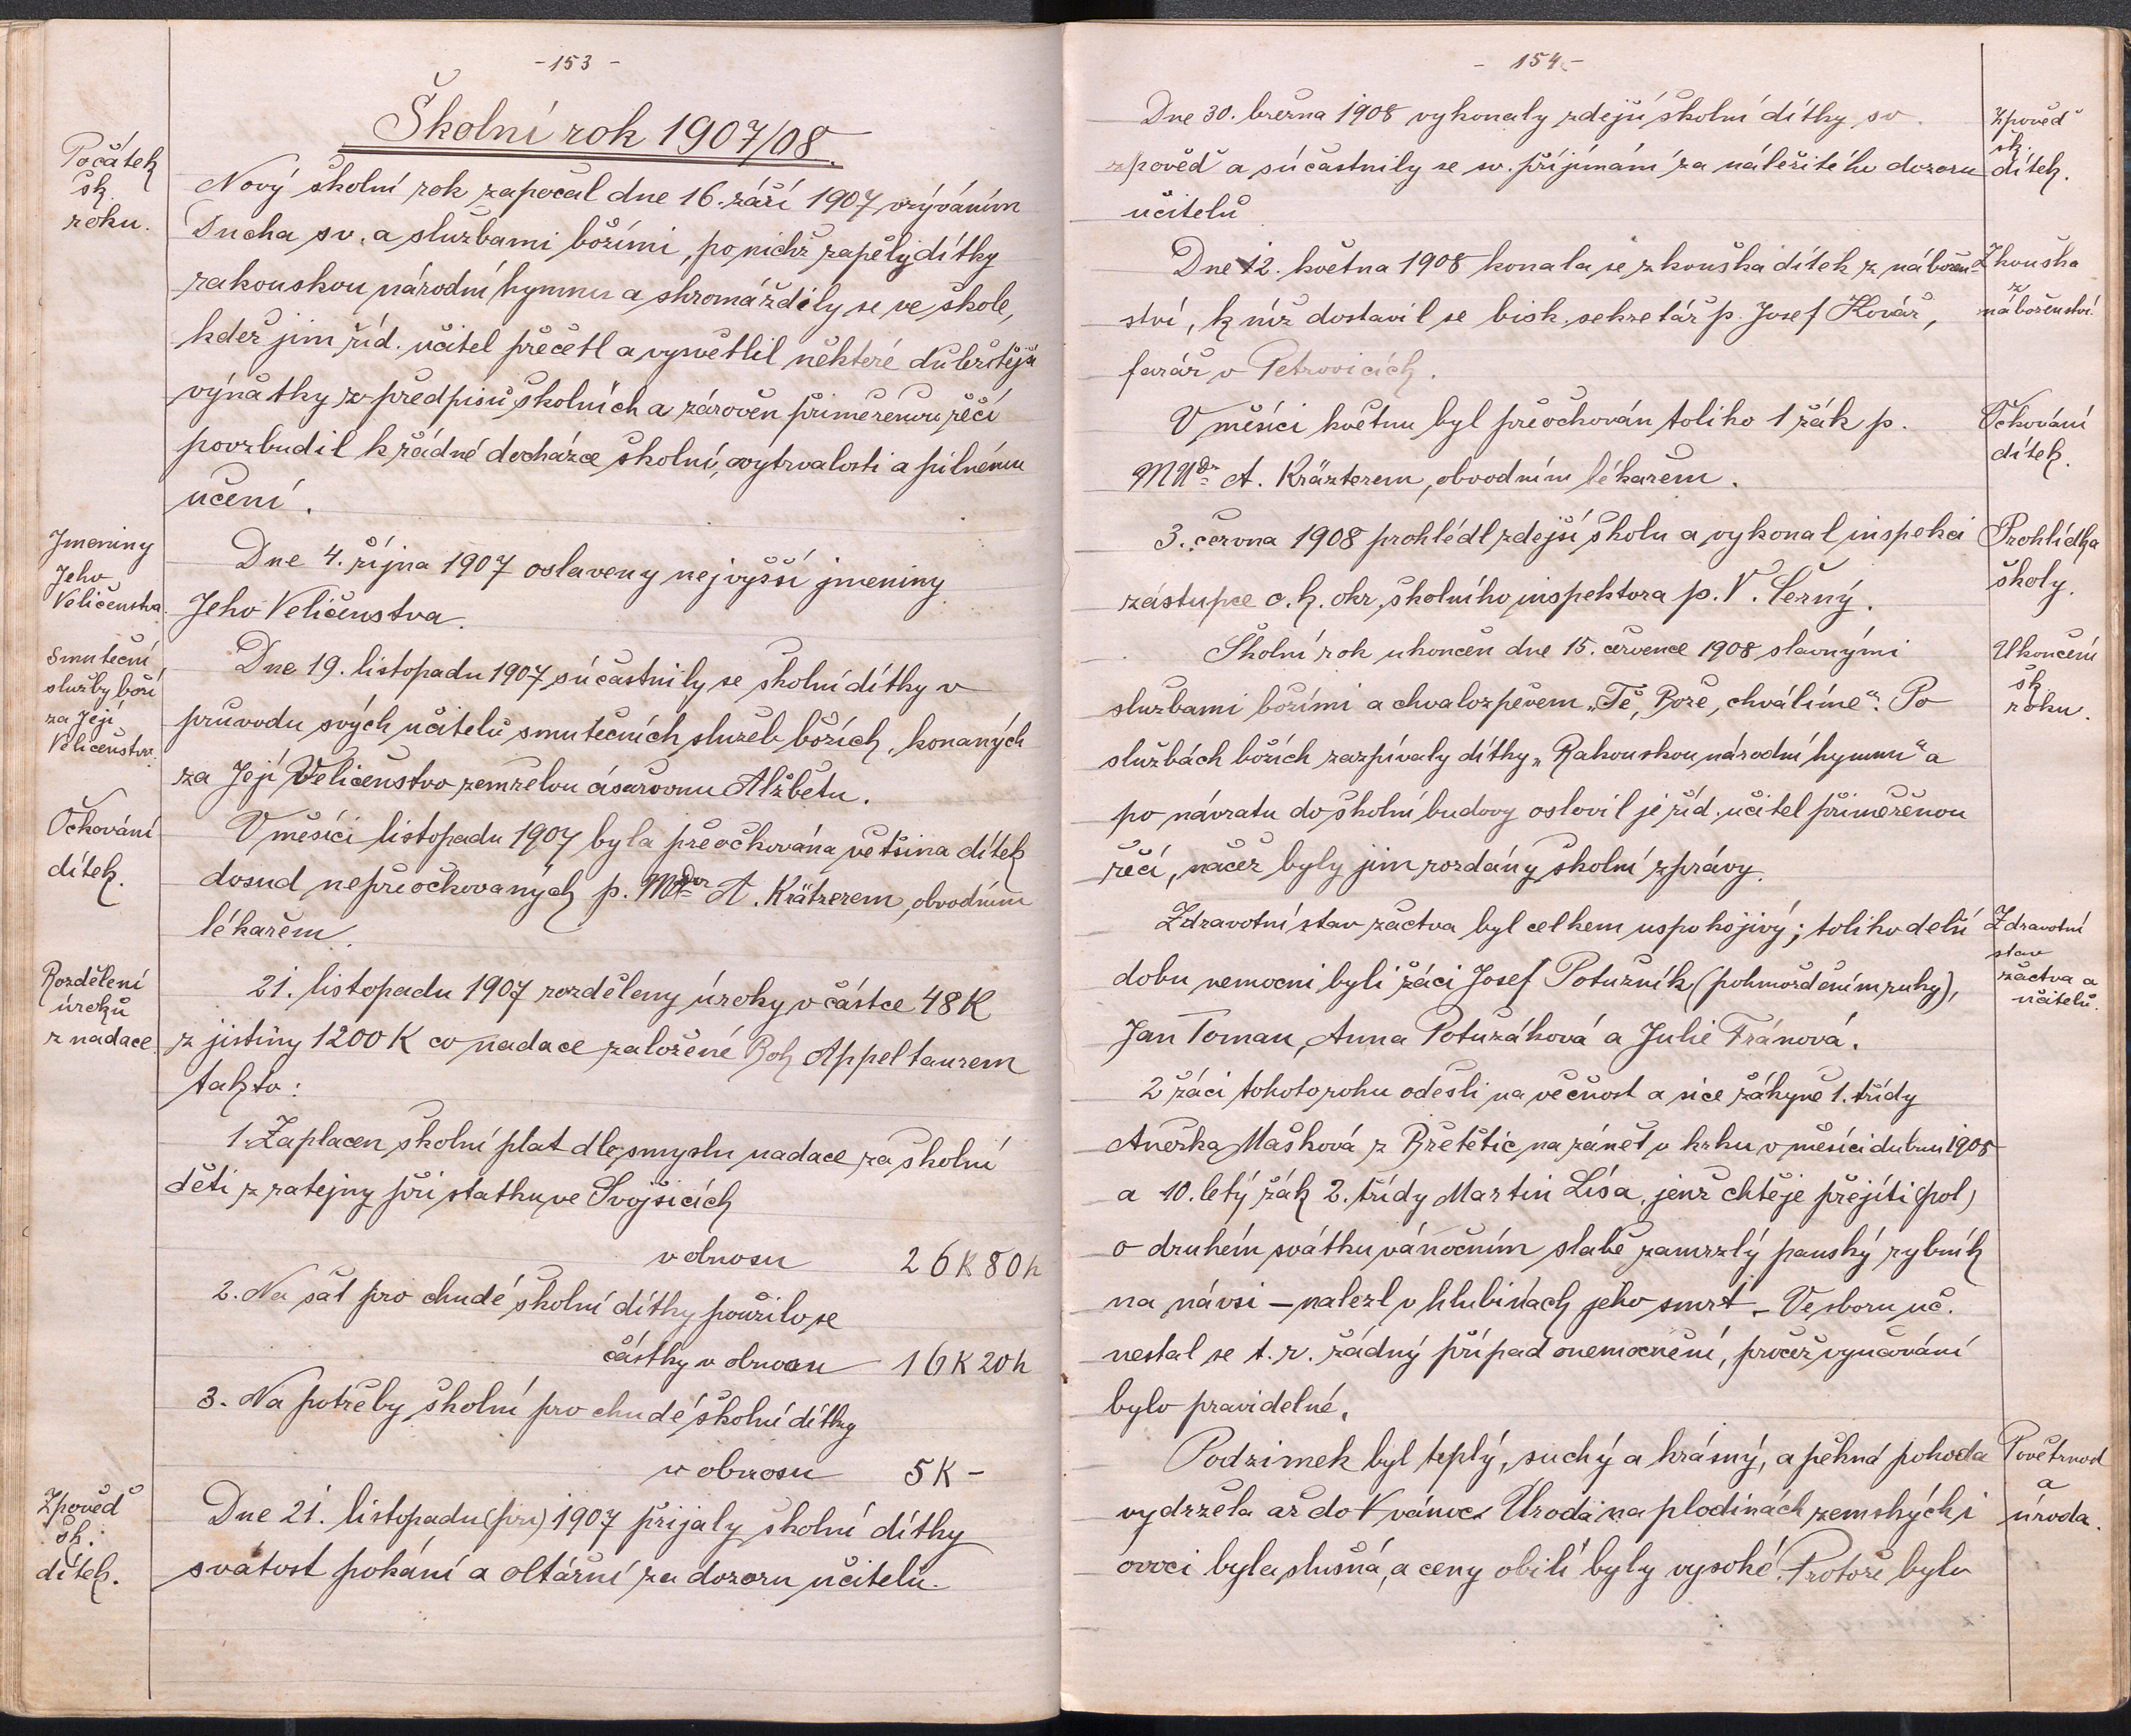 - 153 -
Školní rok 1907/08.
Počátek
šk.
roku.
Nový školní rok započal dne 16. září 1907 vzýváním
Ducha sv. a službami božími, po nichž zapěly dítky
rakouskou národní hymnu a shromáždily se ve škole,
kdež jim říd. učitel přečetl a vysvětlil některé důležitější
výňatky z předpisů školních a zároveň přiměřenou řečí
povzbudil k řádné docházce školní, vytrvalosti a pilnému
učení.
Jmeniny
Jeho
Veličenstva.
Dne 4. října 1907 oslaveny nejvyšší jmeniny
Jeho Veličenstva.
Smuteční
služby boží
za Její
Veličenstvo.
Dne 19. listopadu 1907 súčastnily se školní dítky v
průvodu svých učitelů smutečních služeb božích, konaných
za Její Veličenstvo zemřelou císařovnu Alžbětu.
Očkování
dítek.
V měsíci listopadu 1907 byla přeočkována většina dítek
dosud nepřeočkovaných p. MUDr A. Krätzerem, obvodním
lékařem.
Rozdělení
úroků
z nadace
21. listopadu 1907 rozděleny úroky v částce 48 K
z jistiny 1200 K co nadace založené Boh. Appeltauerem
takto:
1. Zaplacen školní plat dle smyslu nadace za školní
děti z ratejny při statku ve Svojšicích
v obnosu 26 K 80 h
2. Na šat pro chudé školní dítky použilo se
částky v obnosu 16 K 20 h
3. Na potřeby školní pro chudé školní dítky
v obnosu 5 K -
Zpověď
šk.
dítek.
Dne 21. listopadu (pri) 1907 přijaly školní dítky
svátost pokání a oltářní za dozoru učitelů.
- 154 -
Dne 30. března 1908 vykonaly zdejší školní dítky sv.
zpověď a súčastnily se sv. přijímání za náležitého dozoru
učitelů
Zpověď
šk.
dítek.
Dne 12. května 1908 konala se zkouška dítek z nábožen-
ství, k níž dostavil se bisk. sekretář p. Josef Kovář,
farář v Petrovicích.
Zkouška
z
náboženství.
V měsíci květnu byl přeočkován toliko 1 žák p.
MUDr A. Kräzterem, obvodním lékařem.
Očkování
dítek.
3. června 1908 prohlédl zdejší školu a vykonal inspekci
zástupce c. k. okr. školního inspektora p. V. Černý.
Prohlídka
školy.
Školní rok ukončen dne 15. července 1908 slavnými
službami božími a chvalozpěvem „Tě, Bože, chválíme“. Po
službách božích zazpívaly dítky „Rakouskou národní hymnu“ a
po návratu do školní budovy oslovil je říd. učitel přiměřenou
řečí, načež byly jim rozdány školní zprávy.
Ukončení
šk.
roku.
Zdravotní stav žactva byl celkem uspokojivý; toliko delší
dobu nemocni byli žáci Josef Potužník (pohmoždením ruky),
Jan Toman, Anna Potužáková a Julie Fránová.
Zdravotní
stav
žactva a
učitelů.
2 žáci tohoto roku odešli na věčnost a sice žákyně 1. třídy
Anežka Mašková z Břetětic na zánět v krku v měsíci dubnu 1908
a 10. letý žák 2. třídy Martin Lísa, jenž chtěje přejíti (pol)
o druhém svátku vánočním slabě zamrzlý panský rybník
na návsi – nalezl v hlubinách jeho smrt. – Ve sboru uč.
nestal se t. r. žádný případ onemocnění, pročež vyučování
bylo pravidelné.
Podzimek byl teplý, suchý a krásný, a pěkná pohoda
vydržela až do vánoc. Úroda na plodinách zemských i
ovoci byla slušná, a ceny obilí byly vysoké. Protože bylo
Povětrnost
a
úroda.